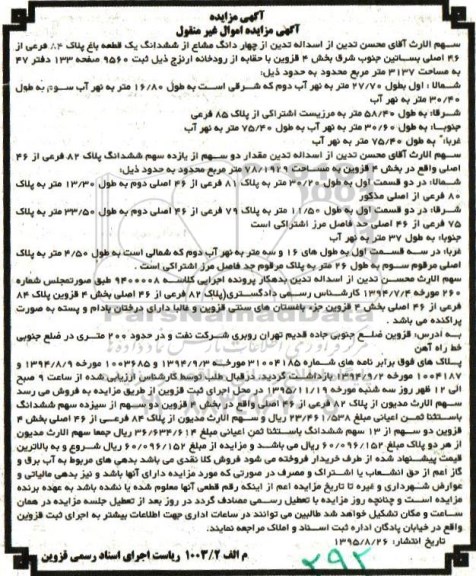 آگهی مزایده
آگهی مزایده اموال غیر منقول
سهم الارث آقای محسن تدین از اسداله تدین از چهار دانگ مشاع از ششدانگ یک قطعه باغ پلاک ۸۴ فرعی از
۴۶ اصلی بساتین جنوب شرق بخش ۴ قزوین با حقابه از رودخانه ارنزج ذیل ثبت ۹۵۶۰ صفحه ۱۳۳ دفتر ۴۷
به مساحت ۳۱۳۷ متر مربع محدود به حدود ذیل:
شمالا: اول بطول ۲۷/۷۰ متر به نهر آب دوم که شرقی است به طول ۱۶/۸۰ متر به نهر آب سوم به طول
۳۰/۴۰ متر به نهر آب
شرقا: به طول ۵۸/۴۰ متر به مرزیست اشتراکی از پلاک ۸۵ فرعی
جنوبا: به طول ۳۰/۶۰ متر به نهر آب به طول ۷۵/۴۰ متر به نهر آب
غربا: به طول ۷۵/۴۰ متر به نهر آب
سهم الارث آقای محسن تدین از اسداله تدین مقدار دو سهم از یازده سهم ششدانگ پلاک ۸۲ فرعی از ۴۶
اصلی واقع در بخش ۴ قزوین به مساحت ۷۸/۱۹۲۹ متر مربع محدود به حدود ذیل:
شمالا: در دو قسمت اول به طول ۳۰/۲۰ متر به پلاک ۸۱ فرعی از ۴۶ اصلی دوم به طول ۱۳/۳۰ متر به پلاک
۸۰ فرعی از اصلی مذکور
شرقا: در دو قسمت اول به طول ۱۱/۵۰ متر به پلاک ۷۹ فرعی از ۴۶ اصلی دوم به طول ۳۳/۵۰ متر به پلاک
۷۵ فرعی از ۴۶ اصلی حد فاصل مرز اشتراکی است
جنوبا: به طول ۳۷ متر به نهر آب
غربا: در سه قسمت اول به طول های ۱۶ و سه متر به نهر آب دوم که شمالی است به طول ۴/۵۰ متر به پلاک
اصلی مرقوم سوم به طول ۲۶ متر به پلاک مرقوم حد فاصل مرز اشتراکی است.
سهم الارث محسن تدین از اسداله تدین بدهکار پرونده اجرایی کلاسه ۹۴۰۰۰۰۸ طبق صورتمجلس شماره
۲۶۰ مورخه ۱۳۹۴/۷/۴ کارشناس رسمی دادگستری(پلاک ۸۲ فرعی از ۴۶ اصلی بخش ۴ قزوین پلاک ۸۴
فرعی از ۴۶ اصلی بخش ۴ قزوین جزء باغستان های سنتی قزوین و غالبا دارای درختان بادام و پسته به صورت
پراکنده می باشد.
به آدرس: قزوین ضلع جنوبی جاده قدیم تهران روبری شرکت نفت و در حدود ۲۰۰ متری در ضلع جنوبی
خط راه آهن
پلاک های فوق برابر نامه های شماره ۳۱۰۰۴۱۸۵ مورخه ۱۳۹۴/۹/۳ و ۱۰۰۲۳۸۵ مورخه ۱۳۹۴/۸/۹ و
۱۰۰۴۱۸۷ مورخه ۱۳۹۴/۹/۲ بازداشت گردید. درقبال طلب توسط کارشناس ارزیابی شده از ساعت ۹ صبح
الی ۱۲ ظهر روز سه شنبه مورخه ۱۳۹۵/۱۱/۱۹ در محل اجرای ثبت قزوین از طریق مزایده به فروش می رسد
سهم الارث مدیون از پلاک ۸۲ فرعی از ۴۶ اصلی واقع در بخش ۴ قزوین دو سهم از سیزده سهم ششدانگ
باستثنا ثمن اعیانی مبلغ ۲۳/۴۶۱/۵۳۸ ریال و سهم الارث مدیون از پلاک ۸۴ فرعی از ۴۶ اصلی بخش ۴
قزوین دو سهم از ۱۳ سهم ششدانگ باستثنا ثمن اعیانی مبلغ ۳۶/۶۳۴/۶۱۴ ریال جمعا سهم الارث مدیون
از هر دو پلاک مبلغ ۶۰/۰۹۶/۱۵۲ ریال می باشد و مزایده از مبلغ ۶۰/۰۹۶/۱۵۲ ریال شروع و به بالاترین
قیمت پیشنهاد شده از طرف خریدار فروخته می شود فروش کلا نقدی می باشد بدهی های مربوط به آب برق و
گاز اعم از حق انشعاب یا اشتراک و مصرف در صورتی که مورد مزایده دارای آنها باشد و نیز بدهی مالیاتی و
عوارض شهرداری و غیره تا تاریخ مزایده اعم از اینکه رقم قطعی آنها معلوم شده یا نشده باشد به عهده برنده
مزایده است و چنانچه روز مزایده با تعطیل رسمی مصادف گردد در روز بعد از تعطیل جلسه مزایده در همان
ساعت و مکان تشکیل خواهد شد طالبین می توانند در ساعات اداری جهت اطلاعات بیشتر به اجرای ثبت قزوین
واقع در خیابان پادگان اداره ثبت اسناد و املاک مراجعه نمایند.
تاریخ انتشار: ۱۳۹۵/۸/۲۶
م الف ۱۰۰۳/۲ ریاست اجرای اسناد رسمی قزوین
۲۹۲